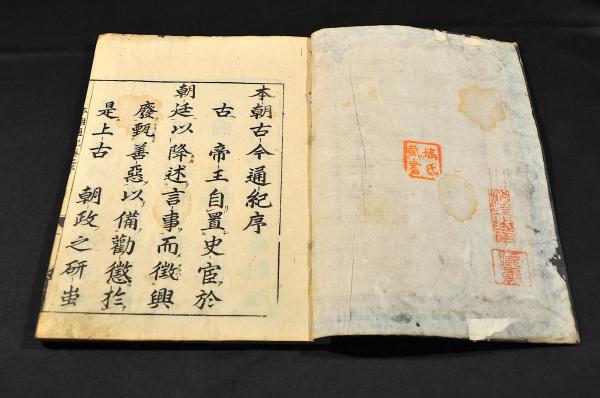 氏
藏書
本朝古今通紀序
古 帝王自置史官於
朝廷以降述言事而徵興
廢甄善惡以備勸懲扵
是上古 朝政之研蚩